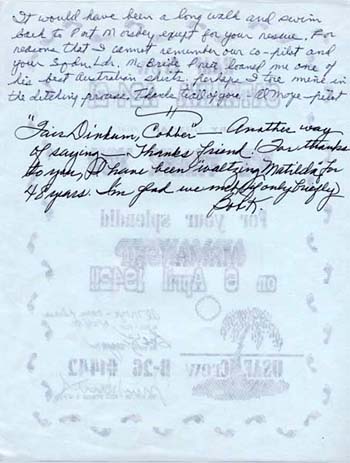 It would have been a long walk and swim
back to Port Moresby exept for your rescue. For
reasons that I cannot remember our co-pilot and
your Sqdn. Ldr. loaned me one of
his best Australian shirts. Perhaps I tore mine in
the ditching process. Thanks to all of you. Al Moye - pilot
"Fair Dinkum, Cobber" — Another way
of saying — Thanks friend! For thanks
to you, I have been "waltzing Matilda" for
48 years. I'm glad we met (if only briefly)
For your splendid
on 6 April 1942!
USAF Crew B-26